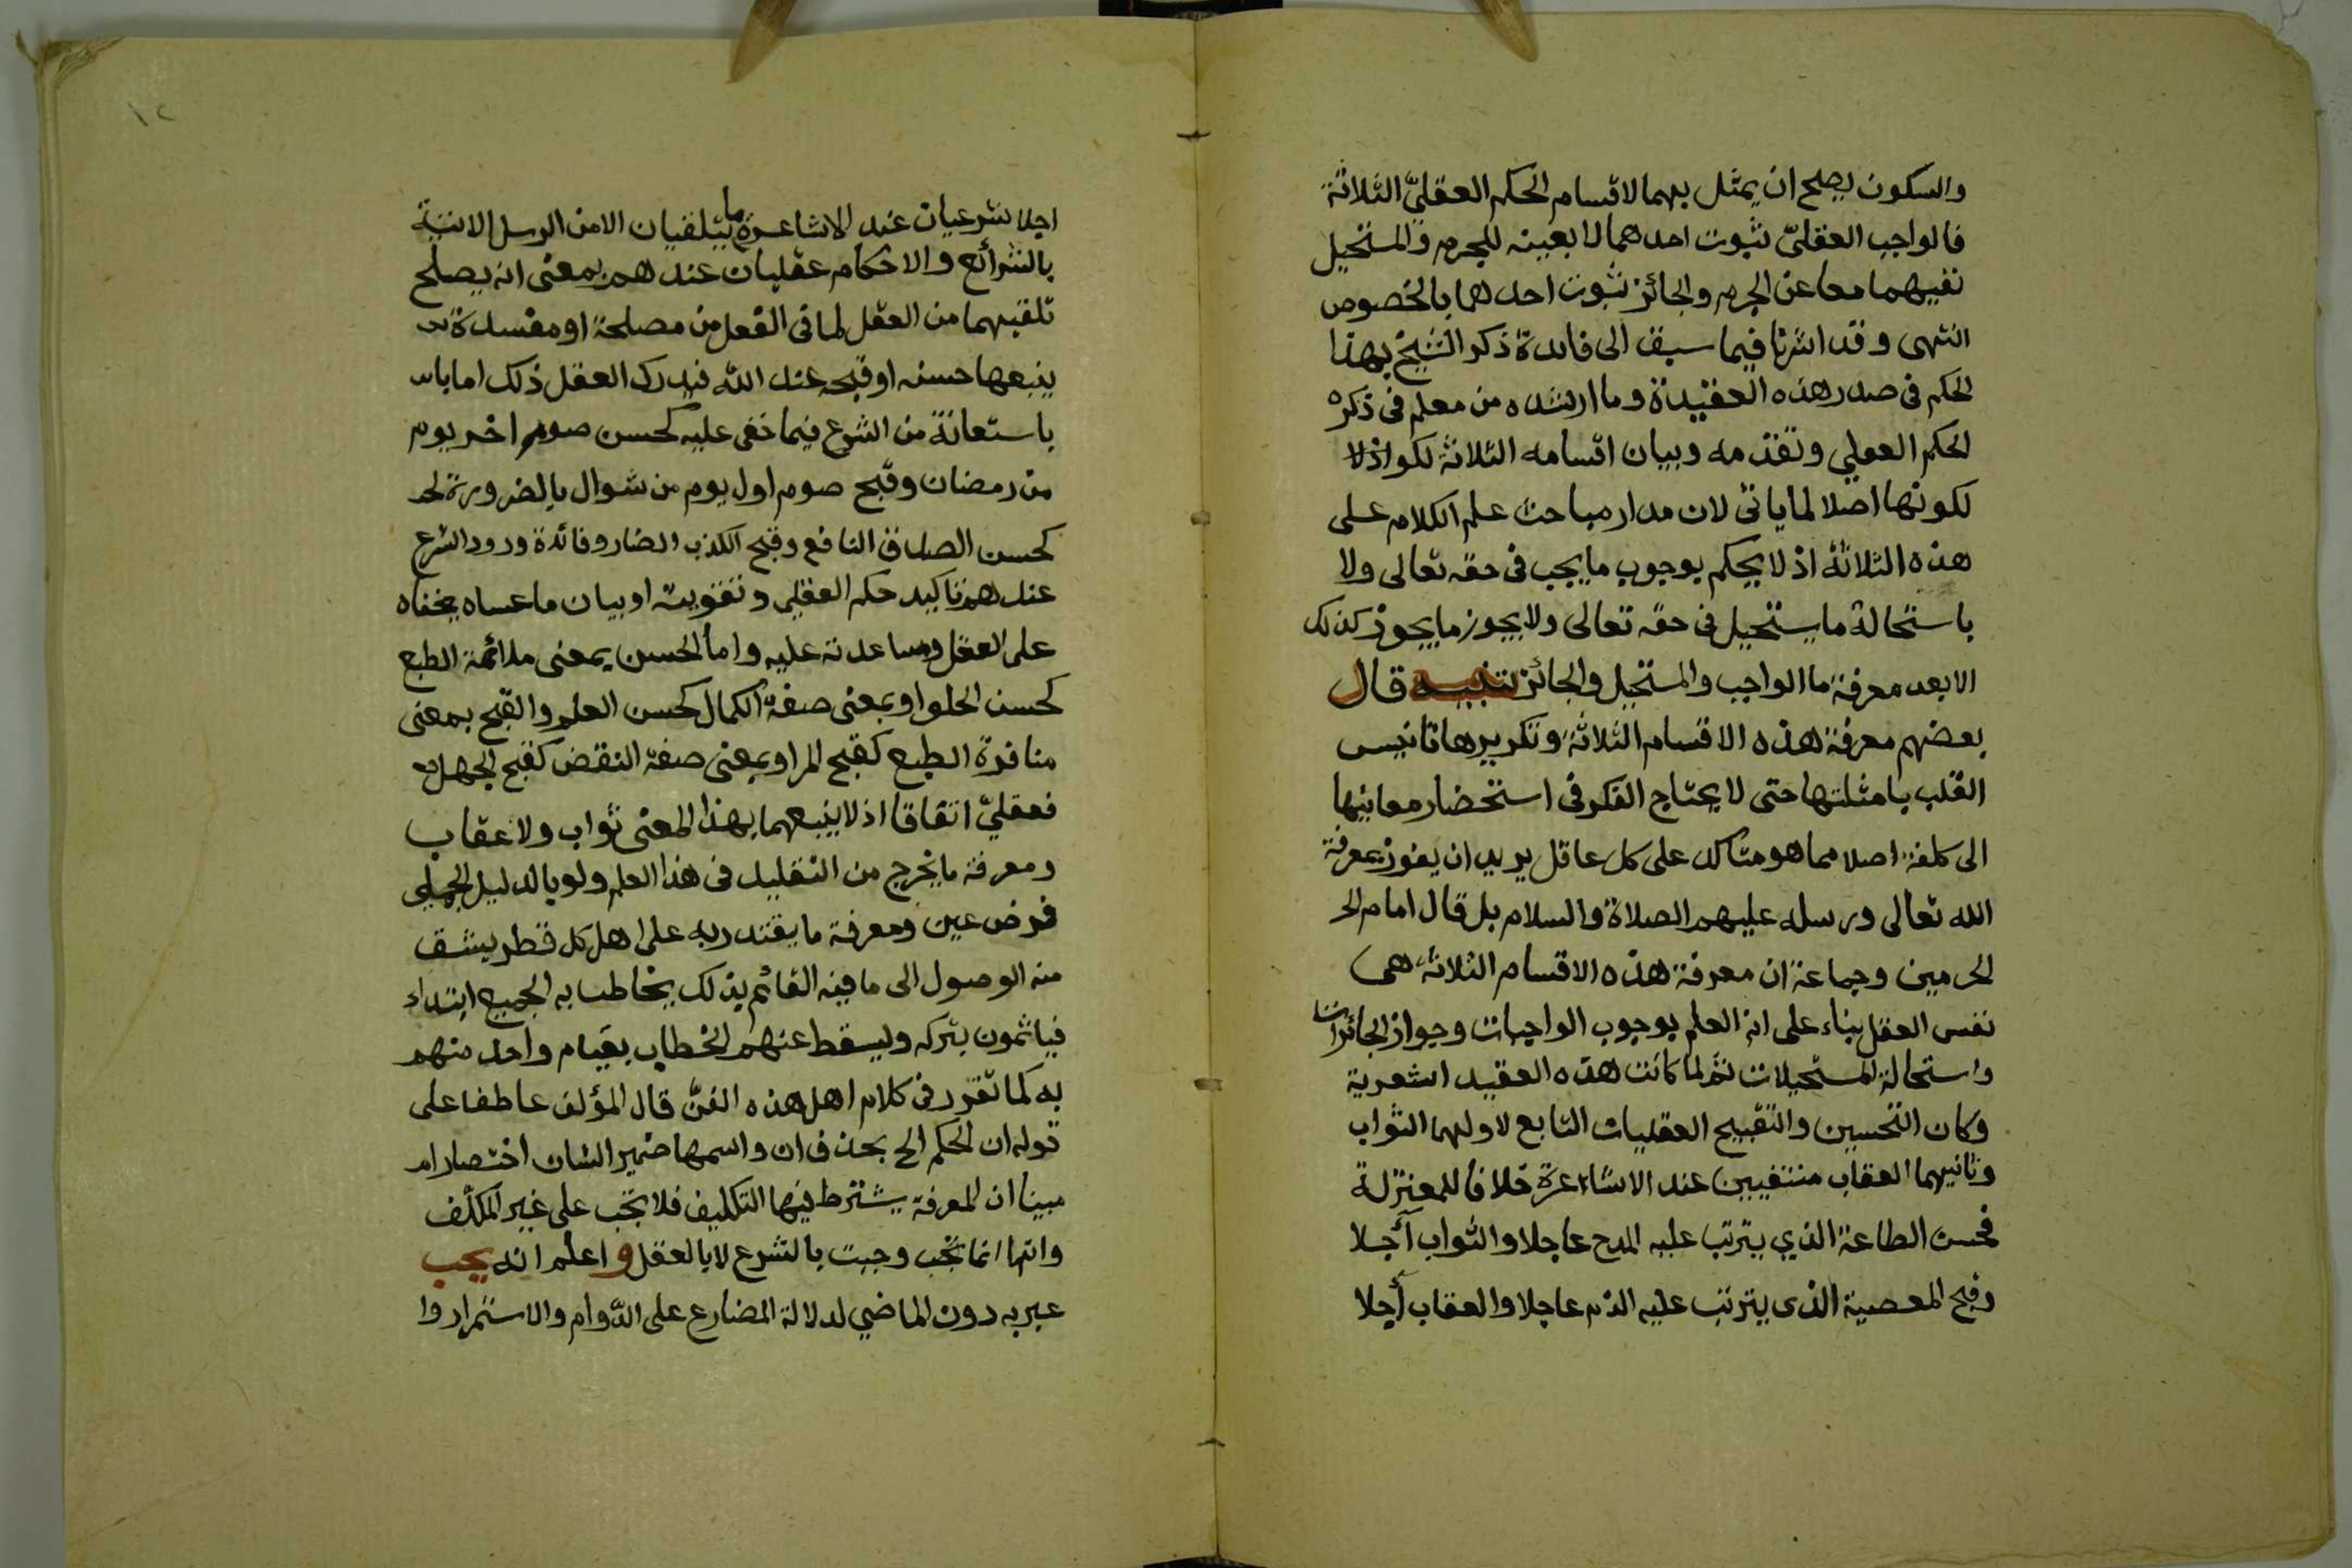 والسكون يصلح ان يمثل بهما لاقسام الحكم العقليّ الثلاثة
فالواجب العقليّ ثبوت احدهما لا بعينه للجرم والمستحيل
نفيهما معا عن الجرم والجائز ثبوت احدهما بالخصوص
انتهى وقد اشرنا فيما سبق الى فائدة ذكر الشيخ بهذا
الحكم فى صدر هذه العقيدة وما ارشده من معلم فى ذكره
الحكم العقلي وتقدمه وبيان اقسامه الثلاثة لكو اذلا
لكونها اصلا لما ياتى لان مدار مباحث علم الكلام على
هذه الثلاثة اذ لا يحكم بوجوب ما يجب فى حقه تعالى ولا
باستحالة ما يستحيل فى حقه تعالى ولا يجوز ما يجوز كذلك
الا بعد معرفة ما الواجب والمستحيل والجائز تنبيه قال
بعضهم معرفة هذه الاقسام الثلاثة وتكريرها تانيس
القلب بامثلتها حتى لا يحتاج الفكر فى استحضار معانيها
الى كلفة اصلا مما هو متاكد على كل عاقل يريد ان يفوز بمعرفة
الله تعالى ورسله عليهم الصلاة والسلام بل قال امام الحر
الحرمين وجماعة ان معرفة هذه الاقسام الثلاثة هى
نفس العقل بناء على انه العلم بوجوب الواجبات وجواز الجائزات
واستحالة المستحيلات ثم لما كانت هذه العقيد اشعرية
وكان التحسين والتقبيح العقليات التابع لاولهما الثواب
وثانيهما العقاب منتفيين عند الاشاعرة خلافا للمعتزلة
فحسن الطاعة الذي يترتب عليه المدح عاجلا والثواب آجلا
وقبح المعصية الذى يترتب عليه الذم عاجلا والعقاب أجلا
١٢
اجلا شرعيان عند الاشاعرة ما يتلقيان الا من الرسل الاتية
بالشرائع والاحكام عقليان عندهم بمعنى انه يصلح
تلقيهما من العقل لما فى الفعل من مصلحة او مفسدة
يتبعها حسنه او قبحه عند الله فيدرك العقل ذلك اما با
باستعانة من الشرع فيما خفى عليه كحسن صوم اخر يوم
من رمضان وقبح صوم اول يوم من شوال بالضرورة
كحسن الصدق النافع وقبح الكذب الضار وفائدة ورود الشرع
عندهم تاكيد حكم العقلي وتقويته او بيان ما عساه يخفاه
على العقل ومساعدته عليه واما الحسن بمعنى ملائمة الطبع
كحسن الحلو او بمعنى صفة الكمال كحسن العلم والقبح بمعنى
منافرة الطبع كقبح المر او بمعنى صفة النقض كقبح الجهل
فعقليّ اتفاقا اذ لا يتبعهما بهذا المعنى ثواب ولا عقاب
ومعرفة ما يخرج من التقليد فى هذا العلم ولو بالدليل الجملي
فرض عين ومعرفة ما يقتدر به على اهل كل قطر يشق
منه الوصول الى ما فيه القائم بذلك يخاطب به الجميع ابتداء
فياثمون بتركه وليسقط عنهم الخطاب بقيام واحد منهم
به كما تقرر فى كلام اهل هذه الفنّ قال المؤلف عاطفا على
قوله ان الحكم الخ بحذف ان واسمها ضمير الشان اختصارا
مبينا ان المعرفة يشترط فيها التكليف فلا تجب على غير المكلف
وانما انما تجب وجبت بالشرع لا بالعقل و اعلم انه يجب
عبر به دون الماضي لدلالة المضارع على الدّوام والاستمرار وا